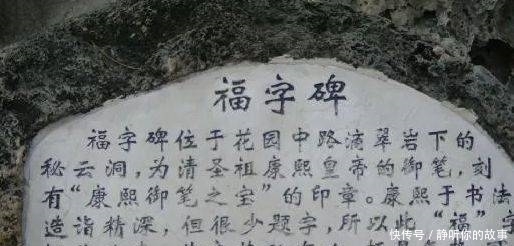 福字碑
福字碑位于花园中路滴翠岩下的
秘云洞，为清圣祖康熙皇帝的御笔，刻
有“康熙御笔之宝”的印章。康熙于书法
造诣精深，但很少题字，所以此“福”字
快传号／静听你的故事